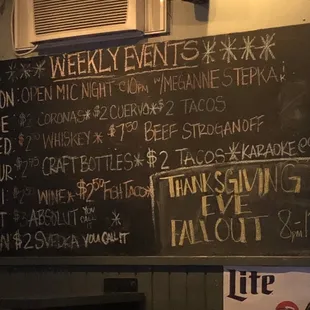 WEEKLY EVENTS
ON: OPEN MIC NIGHT @10PM W/MEGANNE STEPKA
E $2 CORONAS * $2 CUERVO * $2 TACOS
ED: WHISKEY * $7.50 BEEF STROGANOFF
UR: CRAFT BOTTLES * $2 TACOS * KARAOKE @
I WINE * $2.50 FISH TACO
T ABSOLUT YOU CALL IT *
$2 SVEDKA YOU CALL IT
THANKSGIVING
EVE
FALLOUT 8PM
Lite